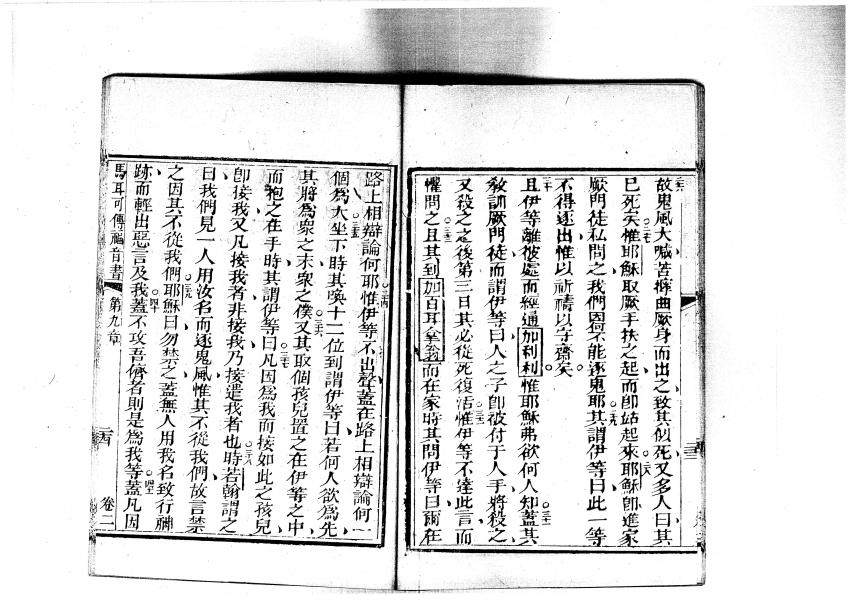 故鬼風大喊苦擰曲厥身而出之致其似死又多人曰其
已死矣惟耶穌取厥手扶之起而卽站起來耶穌卽進家
厥門徒私問之我們因何不能逐鬼耶其謂伊等曰此一等
不得逐出惟以祈禱以守齋矣
且伊等離彼處而經通加利利惟耶穌弗欲何人知蓋其
敎訓厥門徒而謂伊等曰人之子卽被付于人手將殺之
又殺之之後第三日其必從死復活惟伊等不達此言而
懼問之且其到加百耳拿翁而在家時其問伊等曰爾在
路上相辯論何耶惟伊等不出聲蓋在路上相辯論何一
個爲大坐下時其喚十二位到謂伊等曰若何人欲爲先
其將爲衆之末衆之僕又其取個孩兒置之在伊等之中
而抱之在手時其謂伊等曰凡因爲我而接如此之孩兒
卽接我又凡接我者非接我乃接遣我者也時若翰謂之
曰我們見一人用汝名而逐鬼風惟其不從我們故言禁
之因其不從我們耶穌曰勿禁之蓋無人用我名致行神
跡而輕出惡言及我蓋不攻吾儕者則是爲我等蓋凡因
馬耳可傳福音書 第九章 卷二